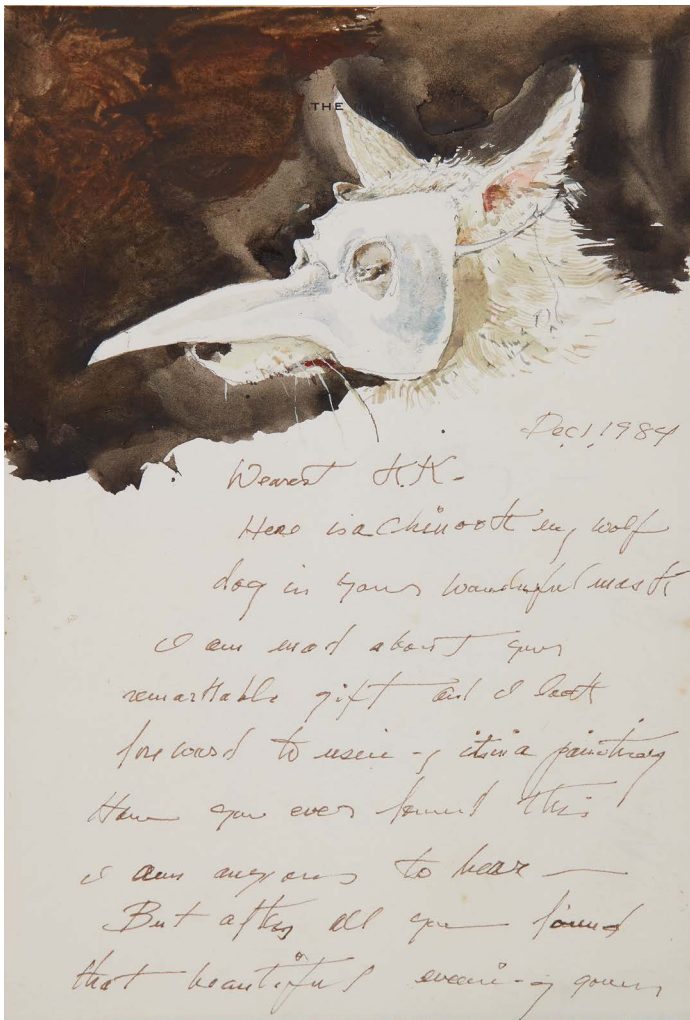 THE
Dec 1. 1984
Dearest H.K.
Here is a Chinook my wolf
dog in your wonderful mask
I am mad about your
remarkable gift and I look
forward to using it in a painting
How you ever found this
I am anxious to hear —
But after all you found
that beautiful evening gown